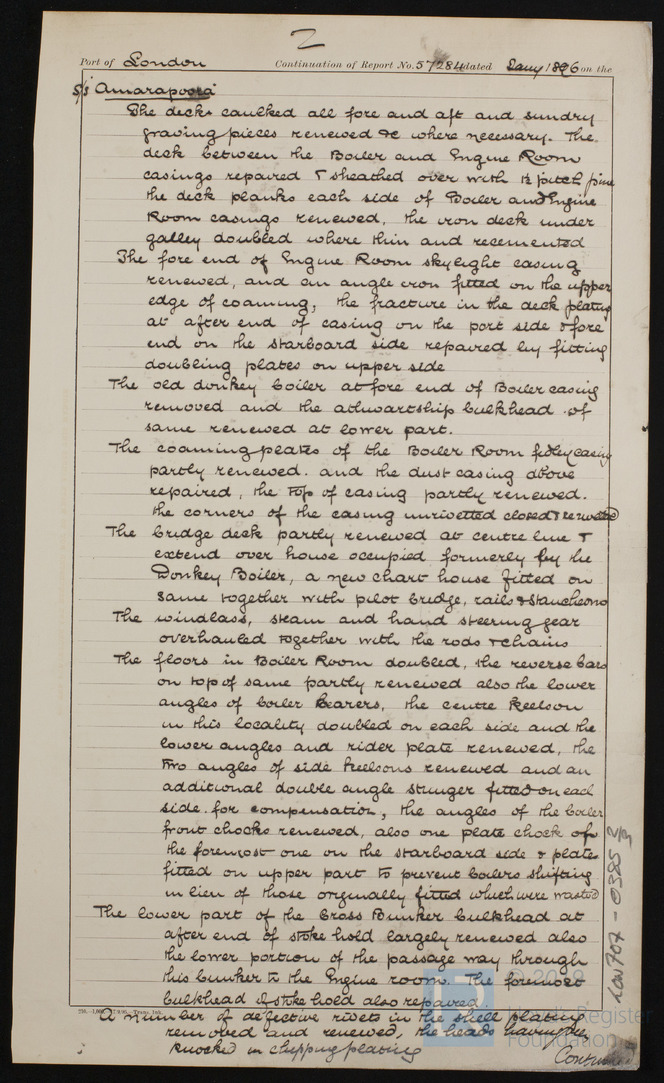 2
Port of London Continuation of Report No. 57284 dated Jany 1896 on the
S/S Amarapoora
The decks caulked all fore and aft and sundry
graving pieces renewed &c where necessary. The
deck between the Boiler and Engine Room
casings repaired & sheathed over with 1½ pitch pine
the deck planks each side of Boiler and Engine
Room casings renewed, the iron deck under
galley doubled where thin and recemented
The fore end of Engine Room skylight casing
renewed, and an angle iron fitted on the upper
edge of coaming, the fracture in the deck plating
at after end of casing on the port side & fore
end on the starboard side repaired by fitting
doubling plates on upper side
The old donkey boiler at fore end of Boiler casing
removed and the athwartship bulkhead of
same renewed at lower part.
The coaming plates of the Boiler Room fidley casing
partly renewed. and the dust casing above
repaired, the top of casing partly renewed.
the corners of the casing unrivetted closed & rerivetted
The bridge deck partly renewed at centre line &
extend over house occupied formerly by the
Donkey Boiler, a new chart house fitted on
same together with pilot bridge, rails & stancheons
The windlass, steam and hand steering gear
overhauled together with the rods & chains
The floors in Boiler Room doubled, the reverse bars
on top of same partly renewed also the lower
angles of boiler bearers, the centre keelson
in this locality doubled on each side and the
lower angles and rider plate renewed, the
two angles of side keelsons renewed and an
additional double angle stringer fitted on each
side for compensation, the angles of the boiler
front chocks renewed, also one plate chock of
the foremost one on the starboard side & plates
fitted on upper part to prevent boilers shifting
in lieu of those orginally fitted which were wasted
The lower part of the Cross Bunker bulkhead at
after end of stoke hold largely renewed also
the lower portion of the passage way through
this bunker to the Engine room. The foremost
bulkhead of stoke hold also repaired.
A number of defective rivets in the shell plating
removed and renewed, the heads having been
knocked in chipping plating
Lon 707 - 0385 2/2
© 2019
Lloyd's Register
Foundation